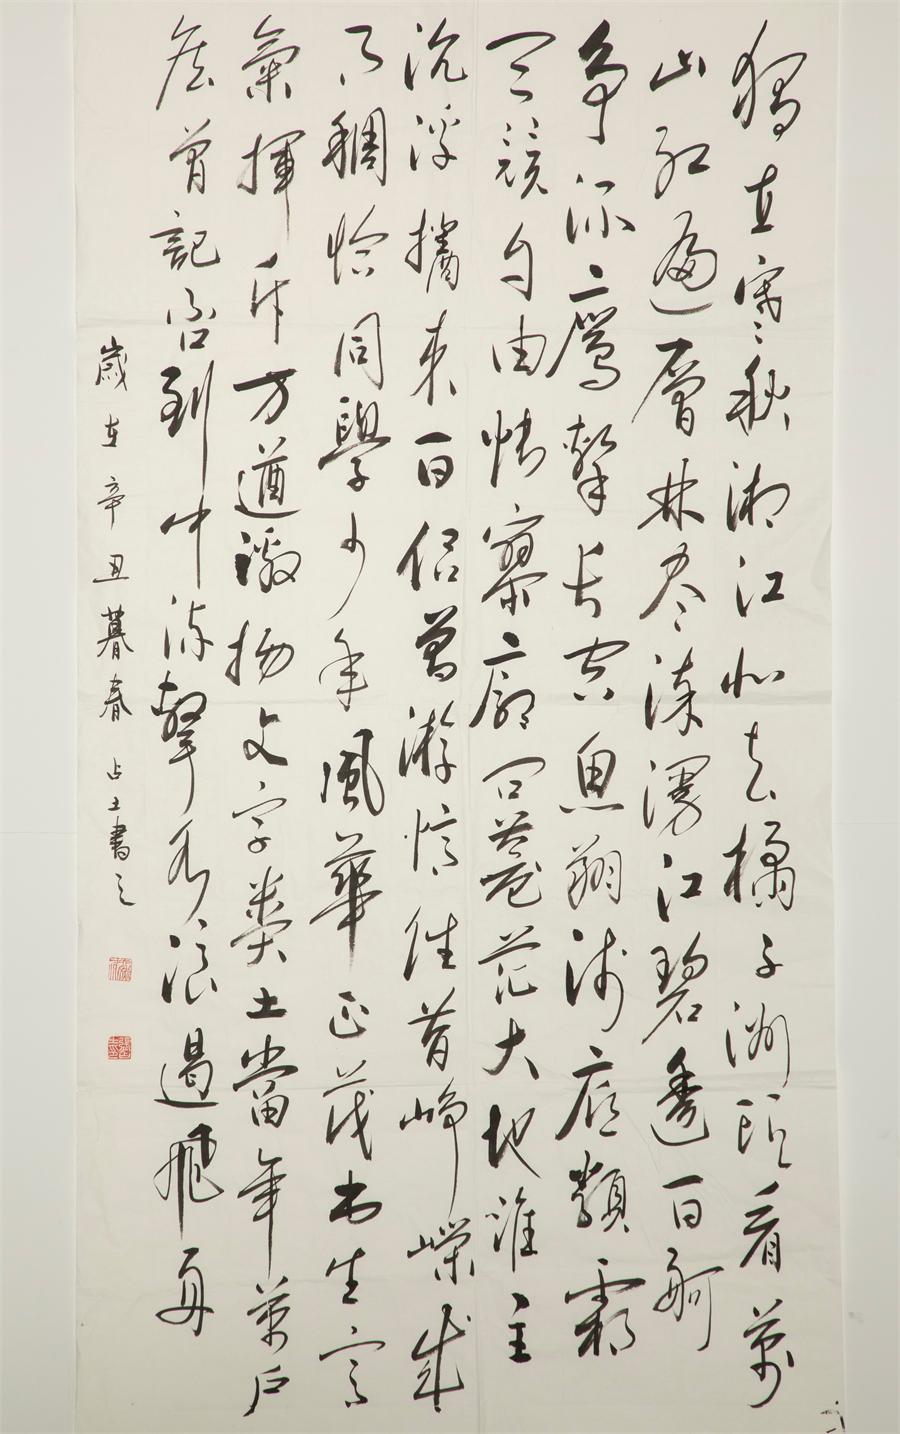 獨立寒秋湘江北去橘子洲頭看萬
山紅遍層林尽染漫江碧透百舸
争流鷹擊長空魚翔淺底類霜
天競自由悵寥廓問蒼茫大地誰主
沉浮攜來百侣曾游憶往昔崢嶸歲
月稠恰同學少年風華正茂書生意
氣揮斥方遒激揚文字糞土當年萬户
侯曾記否到中流擊水浪遏飛舟
歲在辛丑暮春占士書之